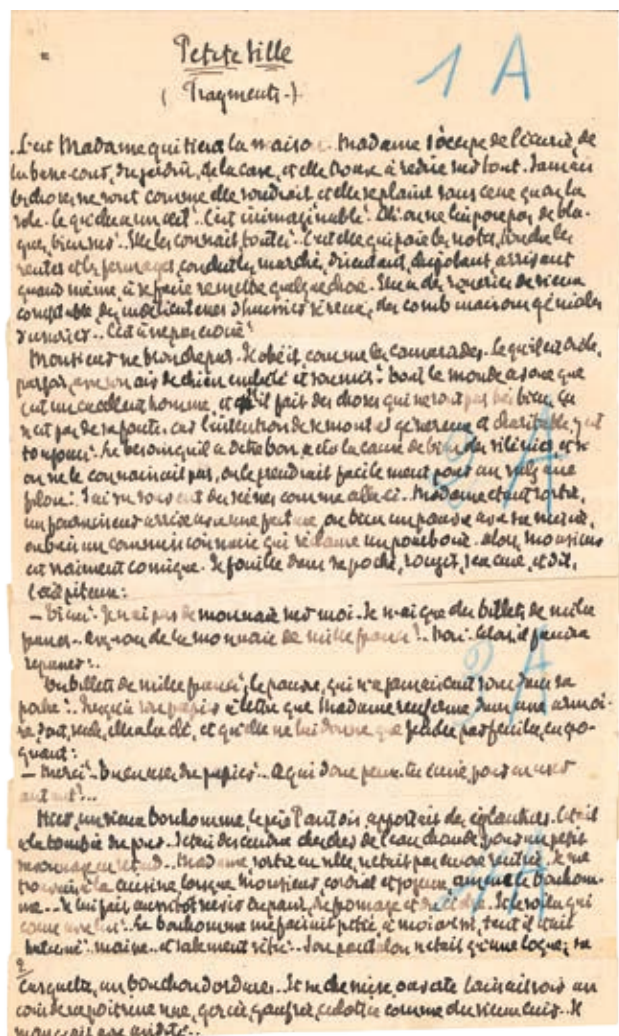 Petite Ville
(Fragments.)
1 A
C'est Madame qui tient la maison. Madame s'occupe de l'écurie, de
la basse-cour, du jardin, de la cave, et elle trouve à redire sur tout. Jamais
les choses ne vont comme elle voudrait et elle se plaint sans cesse qu'on la
vole. Ce qu'elle a un œil. C'est inimaginable. On ne lui pose pas de bla-
gues, bien sûr.. Elle les connaît toutes. C'est elle qui paie les notes, touche les
rentes et les fermages, conduit les marchés,
quand même, à se faire remettre quelque chose. Elle a des roueries de vieux
comptable, des
d'usurier.. C'est à ne pas croire!
Monsieur ne bronche pas. Il obéit, comme les camarades. Ce qu'il est drôle,
parfois, avec son air de chien embêté et soumis. Tout le monde avoue que
c'est un excellent homme, et s'il fait des choses qui ne sont pas très bien, ça
n'est pas de sa faute, car l'intention
toujours. Le besoin qu'il a d'être bon a été la cause de bien des vilenies et si
on ne le connaissait pas, on le prendrait facilement pour un
filou. J'ai vu souvent des scènes comme celle-ci. Madame étant sortie,
un fournisseur arrive avec une facture, ou bien un pauvre avec sa misère,
ou bien un commissionnaire qui réclame un pourboire. Alors, Monsieur
est vraiment comique. Il fouille dans sa poche, rougit, s'excuse, et dit,
l'air piteux:
— Tiens! Je n'ai pas de monnaie sur moi. Je n'ai que des billets de mille
francs. Avez-vous de la monnaie de mille francs?.. Non? Alors, il faudra
repasser..
Des billets de mille francs, le pauvre, qui n'a jamais cent sous dans sa
poche!.. Jusqu'à son papier à lettre que Madame renferme dans une armoi-
re dont, seule, elle a la clé, et qu'elle ne lui donne que feuille par feuille, en go-
gnant:
— Merci.. Tu en uses du papier.. A qui donc peux-tu écrire pour en user
autant?..
Hier, un vieux bonhomme, le père Pantois, apportait des églantiers. C'était
à la tombée du jour. J'étais descendue chercher de l'eau chaude, pour un petit
savonnage en retard.. Madame sortie en ville, n'était pas encore rentrée. Je me
trouvais à la cuisine, lorsque Monsieur, cordial et joyeux, amena le bonhom-
me.. Je lui fais aussitôt servir du pain, du fromage et du cidre.
Le bonhomme me faisait pitié, à moi aussi, tant il était
maigre.. et salement vêtu.. Son pantalon n'était qu'une loque; sa
casquette, un bouchon d'ordures.. Et sa chemise ouverte laissait voir un
coin de sa poitrine nue, gercée, gaufrée, culottée comme du vieux cuir.. Il
mangeait avec avidité..
2 A
3 A